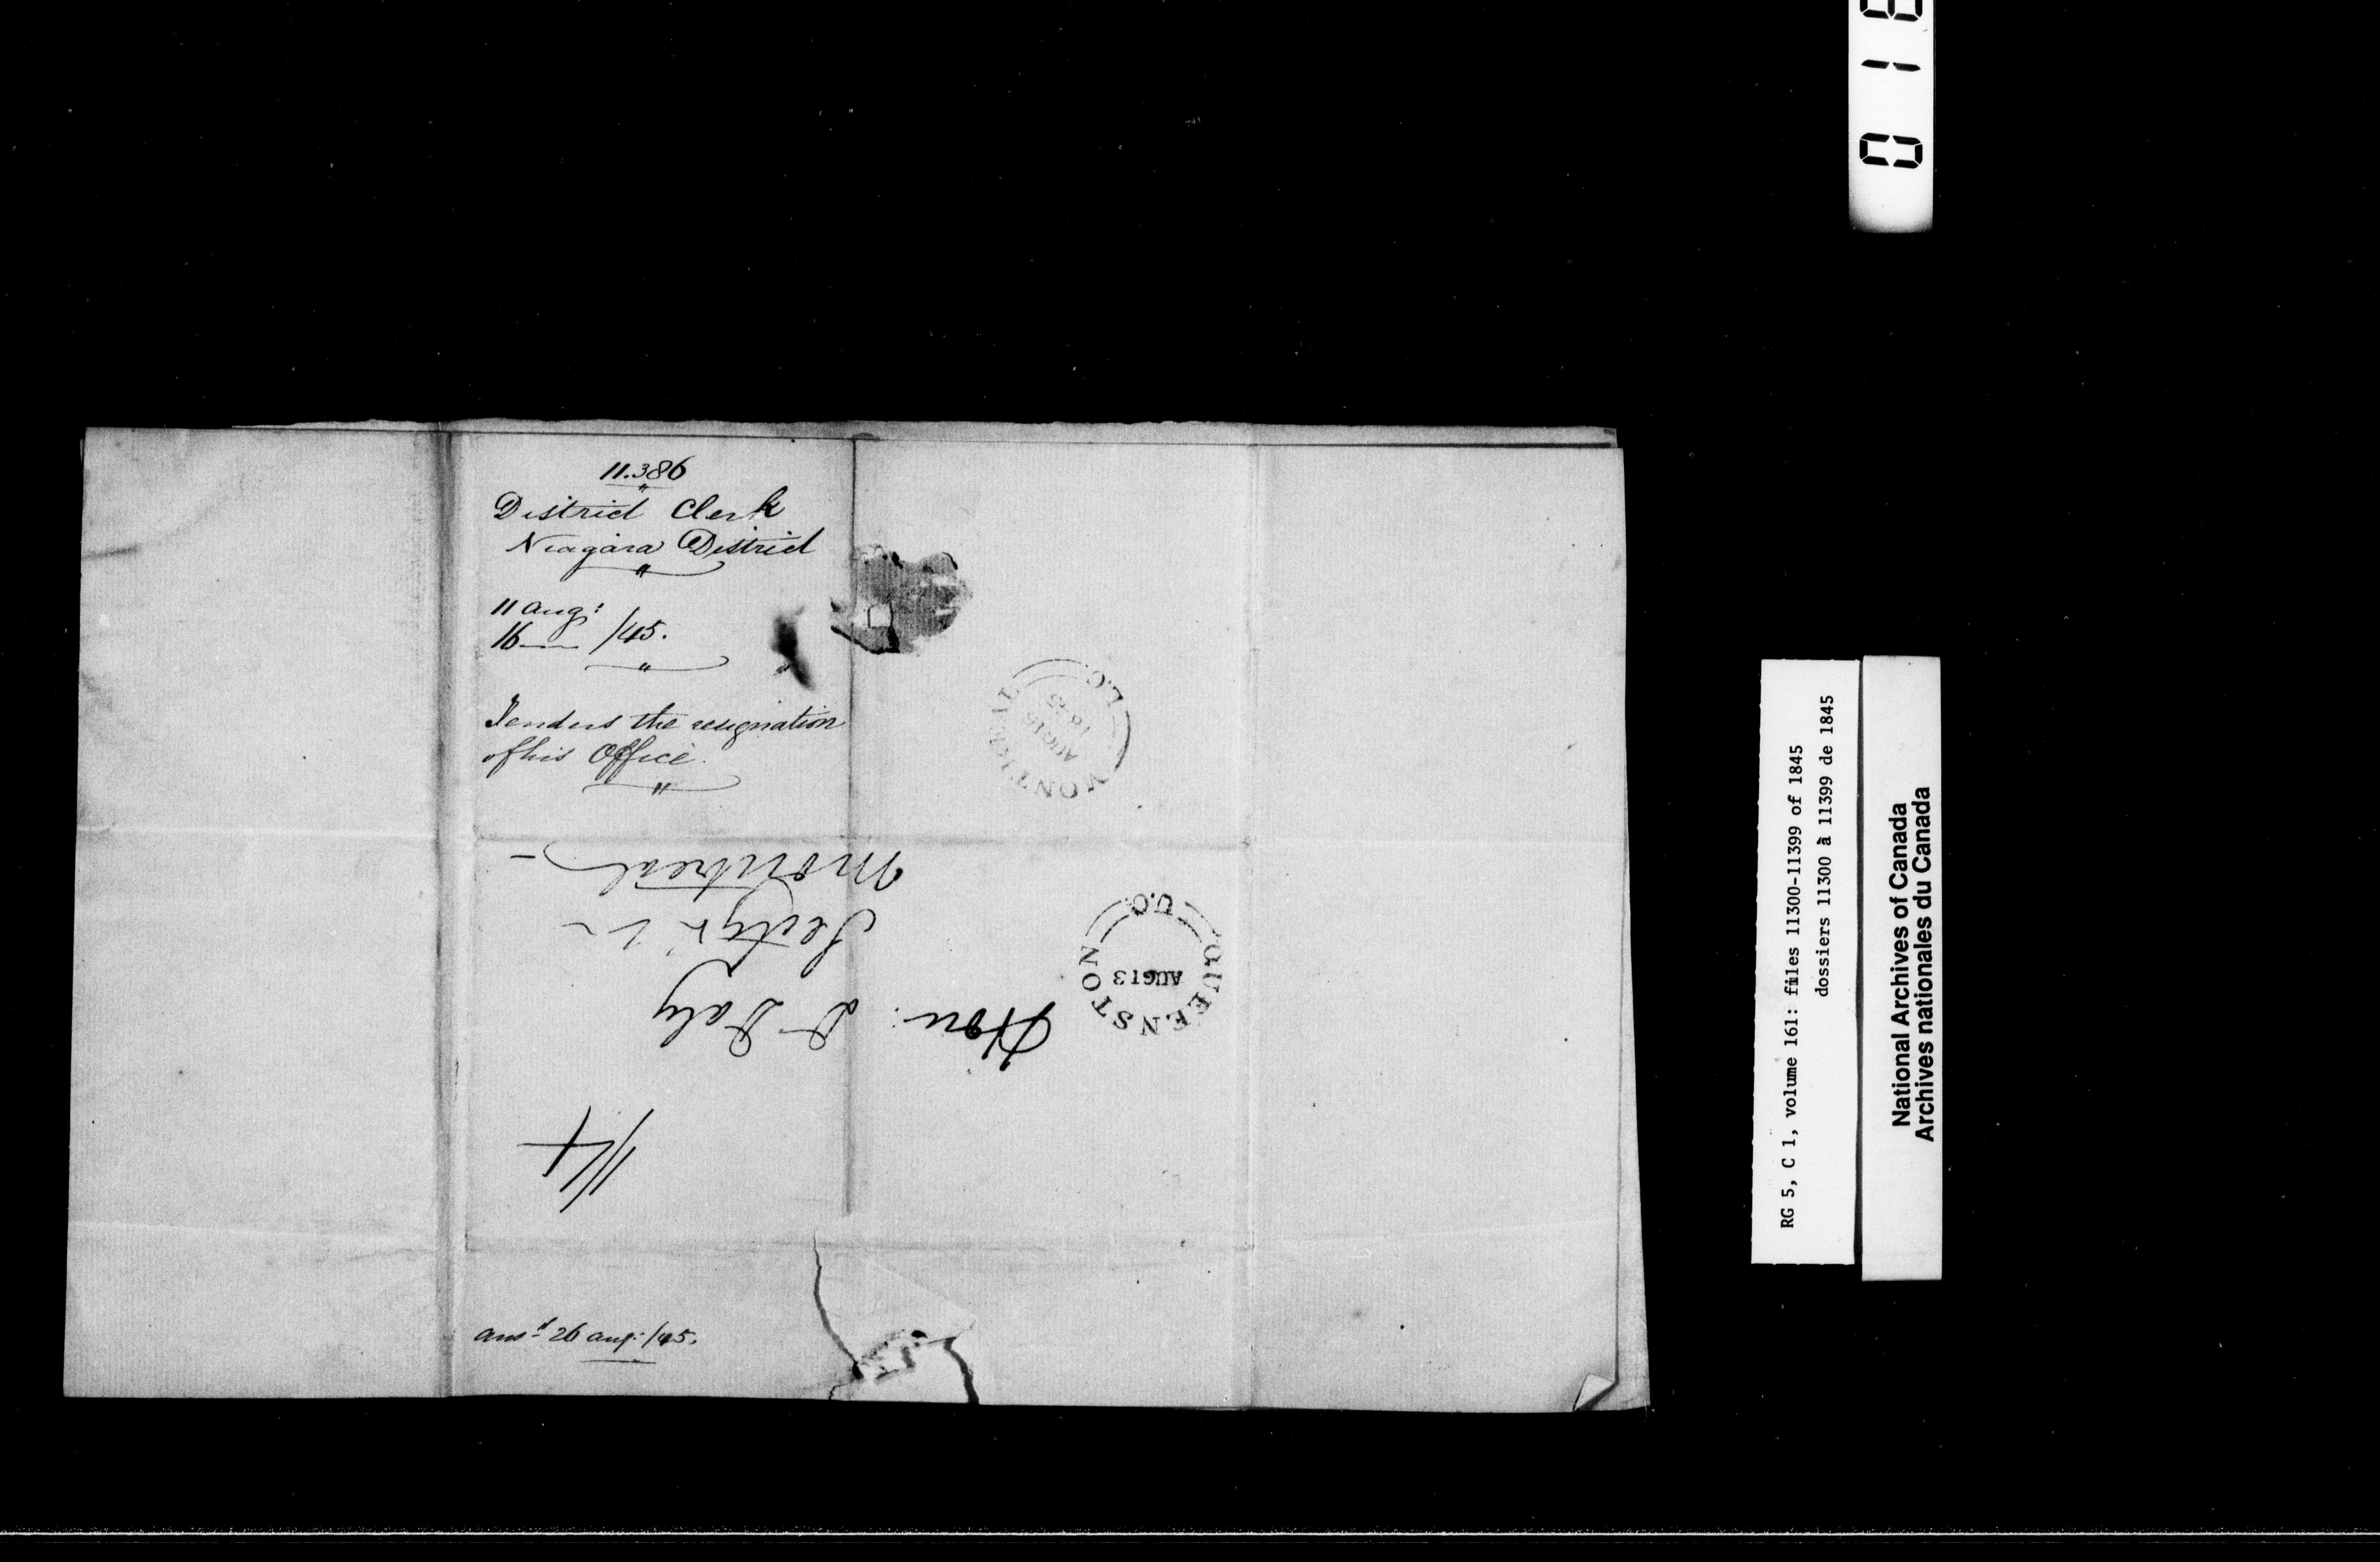 11.386
District Clerk
Niagara District
11 Augt
16 — /45.
Tenders the resignation
of his Office.
Hon: D Daly
Secty
Montreal —
1/4
ansd 26 Aug: /45.
MONTREAL
AUG 16
1845
L.C.
QUEENSTON
AUG 13
U.C.
RG 5, C 1, volume 161: files 11300-11399 of 1845
dossiers 11300 à 11399 de 1845
National Archives of Canada
Archives nationales du Canada
0 1